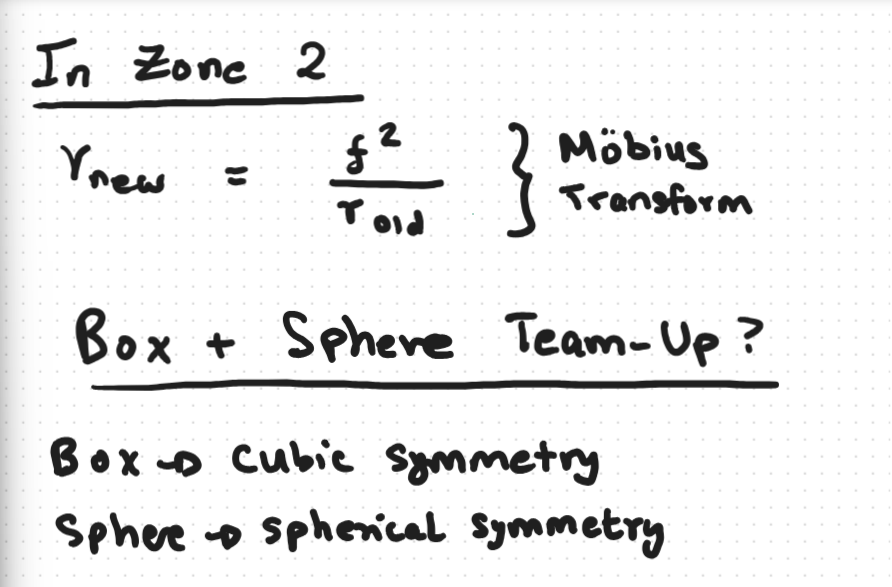 In Zone 2
r_new = f² / r_old } Möbius Transform
Box + Sphere Team-Up?
Box → Cubic symmetry
Sphere → spherical symmetry